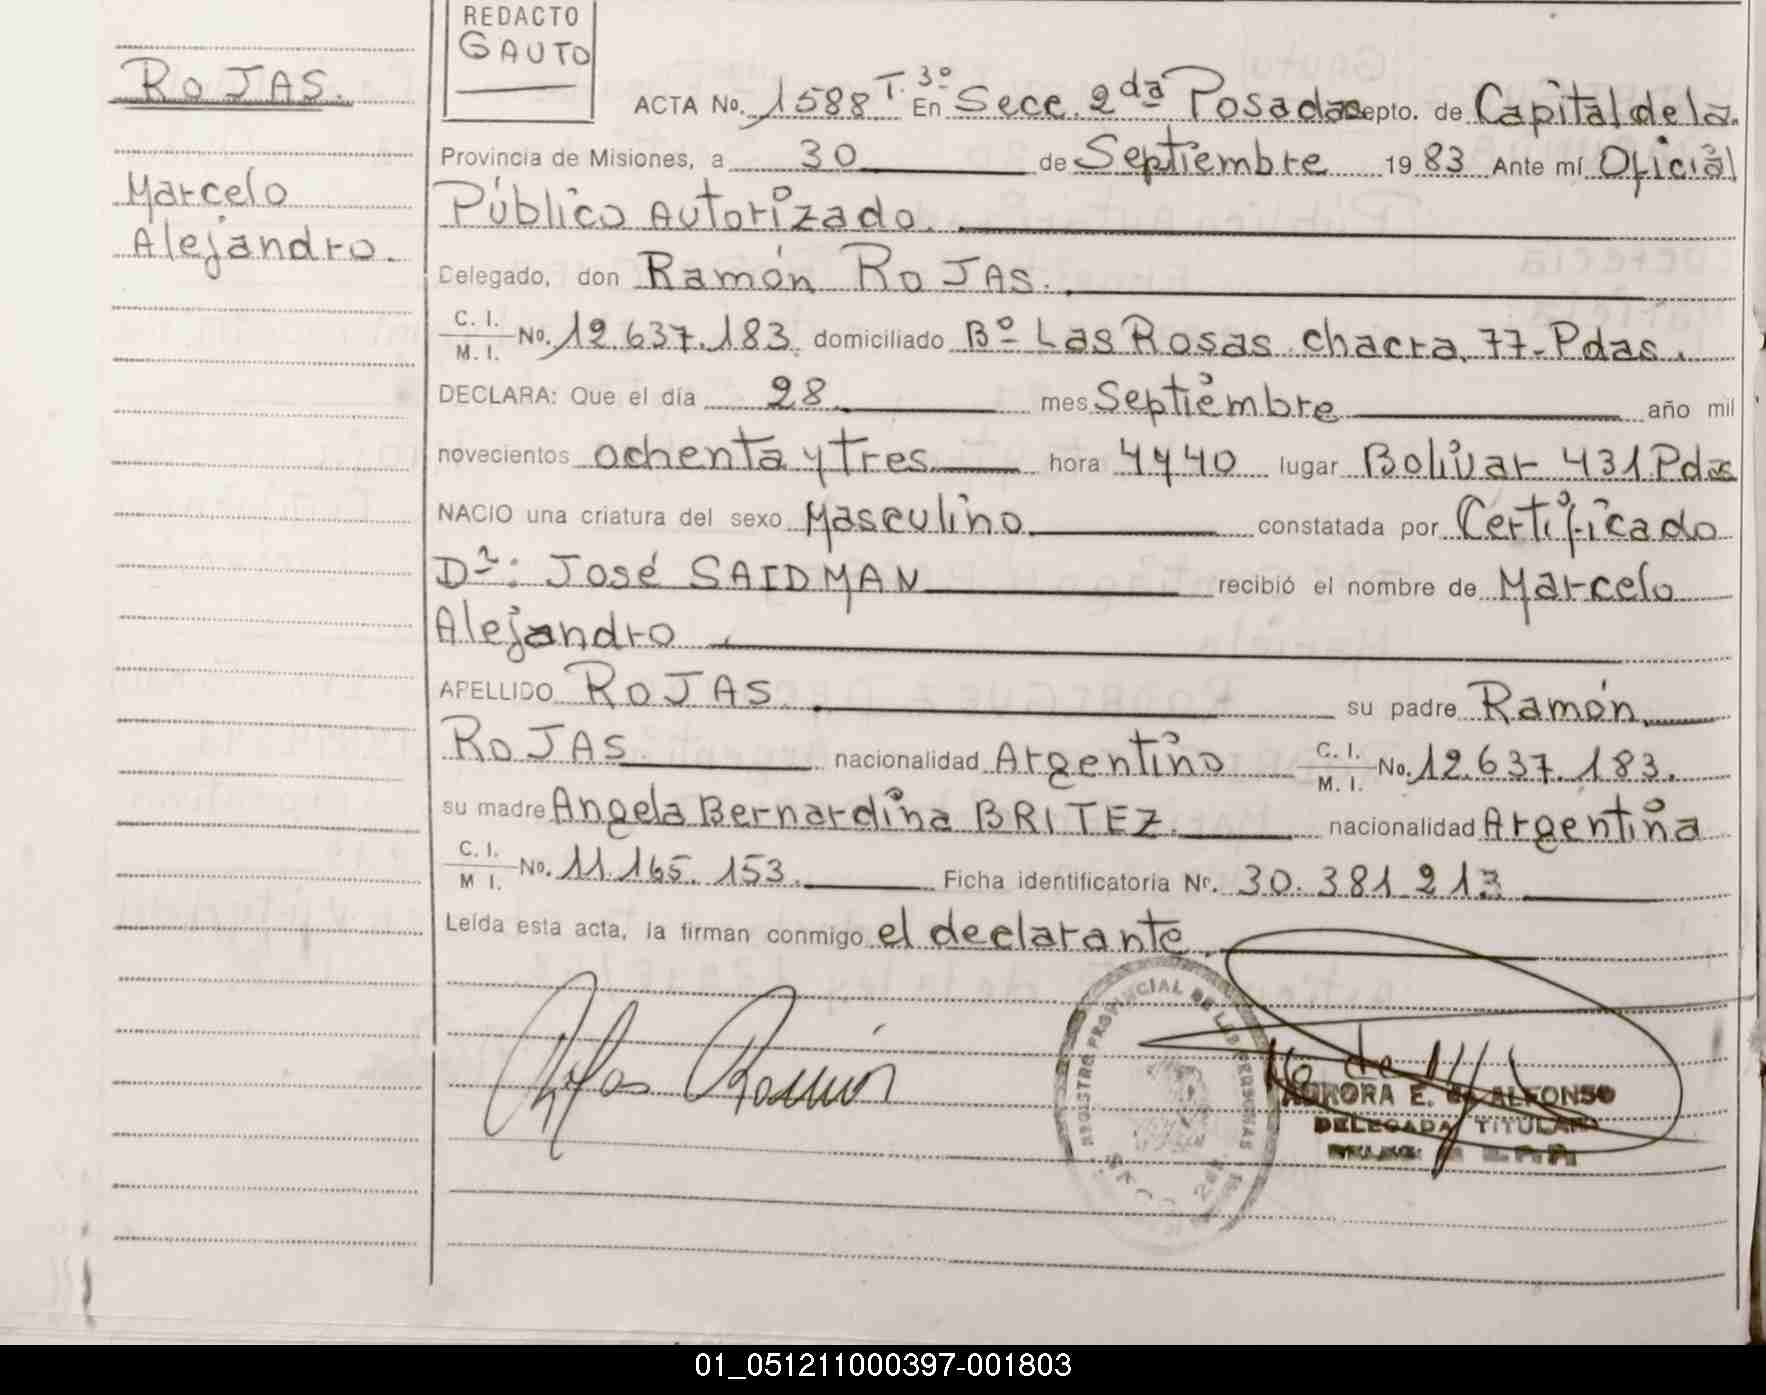 REDACTO
GAUTO
ROJAS.
Marcelo
Alejandro.
ACTA No. 1588 T. 3º En Secc. 2da Posadas Depto. de Capital de la
Provincia de Misiones, a 30 de Septiembre 1983 Ante mí Oficial
Público Autorizado.
Delegado, don Ramón ROJAS.
C. I.
M. I. No. 12.637.183 domiciliado Bº Las Rosas chacra 77-Pdas.
DECLARA: Que el día 28 mes Septiembre año mil
novecientos ochenta y tres hora 4 y 40 lugar Bolívar 431 Pdas
NACIO una criatura del sexo Masculino constatada por Certificado
Dr: José SAIDMAN recibió el nombre de Marcelo
Alejandro
APELLIDO ROJAS su padre Ramón
ROJAS nacionalidad Argentino C. I.
M. I. No. 12.637.183.
su madre Angela Bernardina BRITEZ nacionalidad Argentina
C. I.
M I. No. 11.165.153. Ficha identificatoria Nr. 30.381.213
Leída esta acta, la firman conmigo el declarante.
Rojas Ramón
REGISTRO PROVINCIAL DE LAS PERSONAS
AURORA E. ALFONSO
DELEGADA TITULAR
01_051211000397-001803